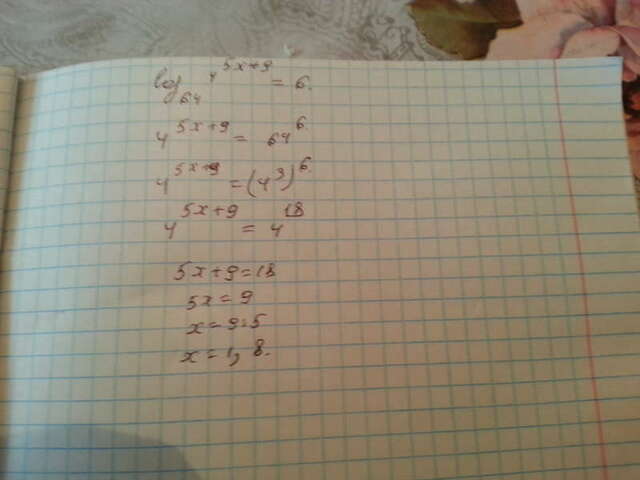 log₆₄ 4^(5x+9) = 6.
4^(5x+9) = 64^6.
4^(5x+9) = (4^3)^6.
4^(5x+9) = 4^18
5x+9=18
5x=9
x=9:5
x=1,8.